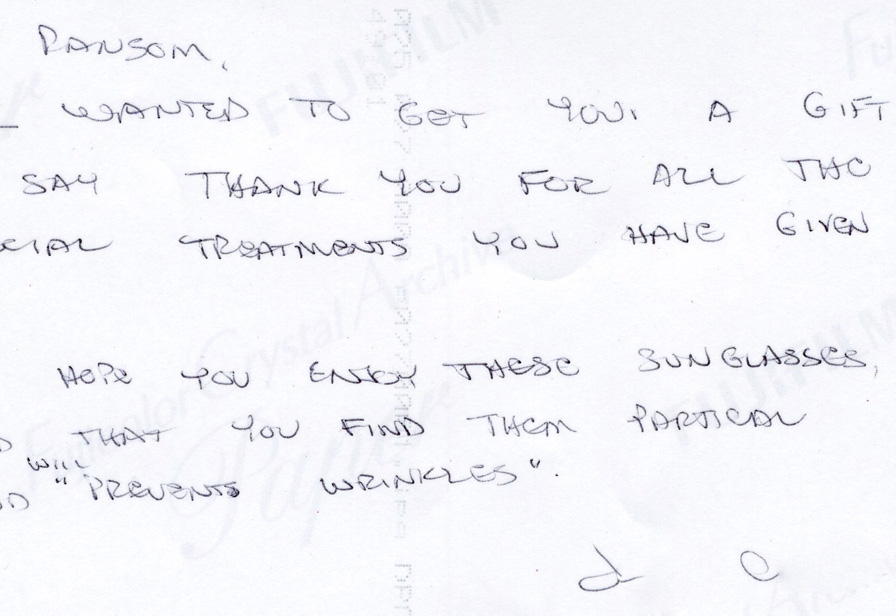 RANSOM,
WANTED TO GET YOU. A GIFT
SAY THANK YOU FOR ALL THE
CIAL TREATMENTS YOU HAVE GIVEN
HOPE YOU ENJOY THESE SUNGLASSES,
D THAT YOU FIND THEM PARTICAL
WILL
D "PREVENTS WRINKLES".
d e
FUJIFILM
Fujicolor Crystal Archive
Paper
FUJIFILM